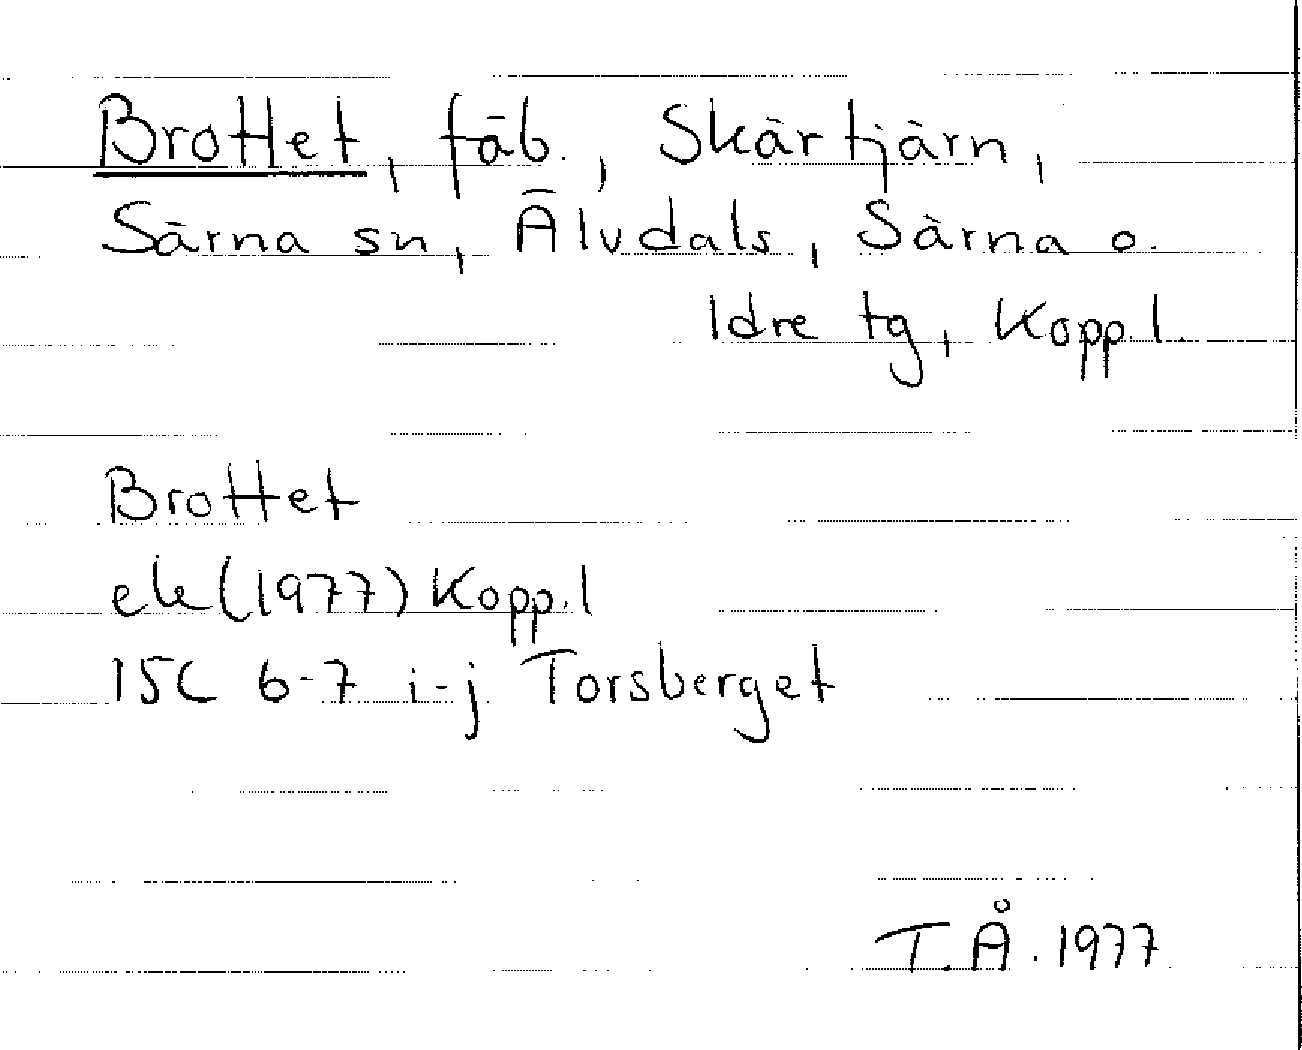 Brottet, fäb., Skärtjärn,
Särna sn, Älvdals, Särna o.
Idre tg, Kopp.l.
Brottet
ek(1977) Kopp.l
15C 6-7 i-j Torsberget
T.Å. 1977